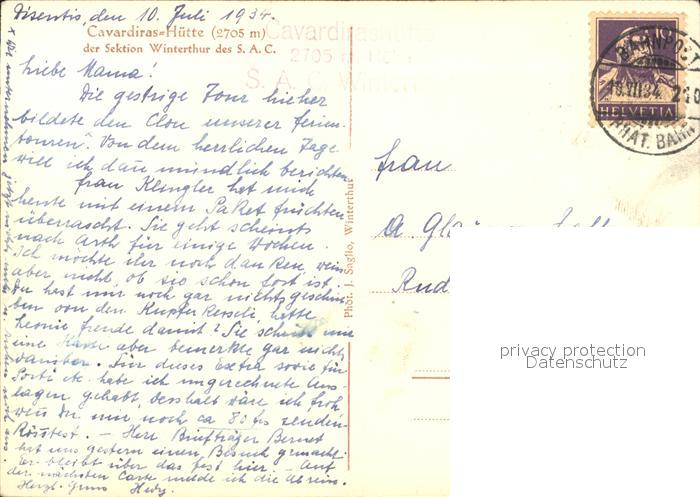 Disentis, den 10. Juli 1934.
Cavardiras=Hütte (2705 m)
der Sektion Winterthur des S. A. C.
Cavardirashütte
2705 m
S. A. C. Winterthur
Liebe Mama!
Die gestrige Tour hieher
bildete den Clou unserer Ferien-
touren. Von dem herrlichen Tage
will ich dann mündlich berichten
Frau Klingler hat mich
heute mit einem Paket Früchten
überrascht. Sie geht scheints
nach Arth für einige Wochen.
Ich möchte ihr noch danken, weiss
aber nicht, ob sie schon fort ist.
Du hast mir noch gar nichts geschrie-
ben von den Kupfer kesseli, hatte
Freude damit? Sie schrieb mir
eine Karte aber bemerkte gar nichts
darüber. Für dieses Extra sowie für
Porti etc. habe ich ungerechnete Aus-
lagen gehabt, desshalb wäre ich froh
wenn Du mir noch ca 80 frs senden
. – Herr Briefträger Bernet
hat uns gestern einen Besuch gemacht
Er bleibt über das Fest hier. – Auf
der nächsten Karte melde ich die Abreise.
Herzl. Gruss Hedy.
x Wir unternehmen jetzt nichts mehr
Phot. J. Soglio, Winterthur
BAHNPOST
10.VII.34. 2
AMBULANT
10
HELVETIA
Frau
A.
privacy protection
Datenschutz